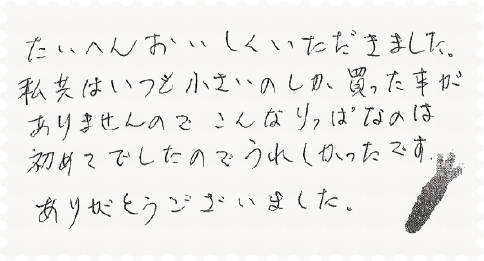 たいへんおいしくいただきました。
私共はいつも小さいのしか、買った事が
ありませんので こんなりっぱなのは
初めてでしたのでうれしかったです.
ありがとうございました。